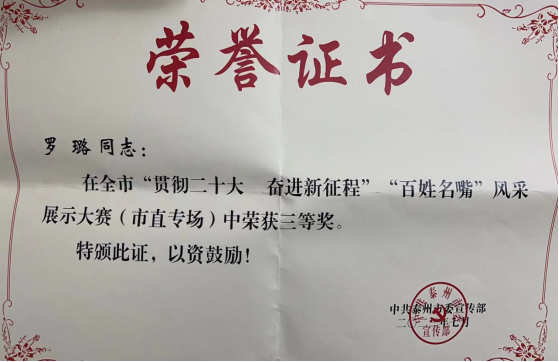 荣誉证书
罗 璐 同志：
在全市“贯彻二十大 奋进新征程”“百姓名嘴”风采
展示大赛（市直专场）中荣获三等奖。
特颁此证，以资鼓励！
中共泰州市委宣传部
二〇 年七月
中共泰州市委
宣传部